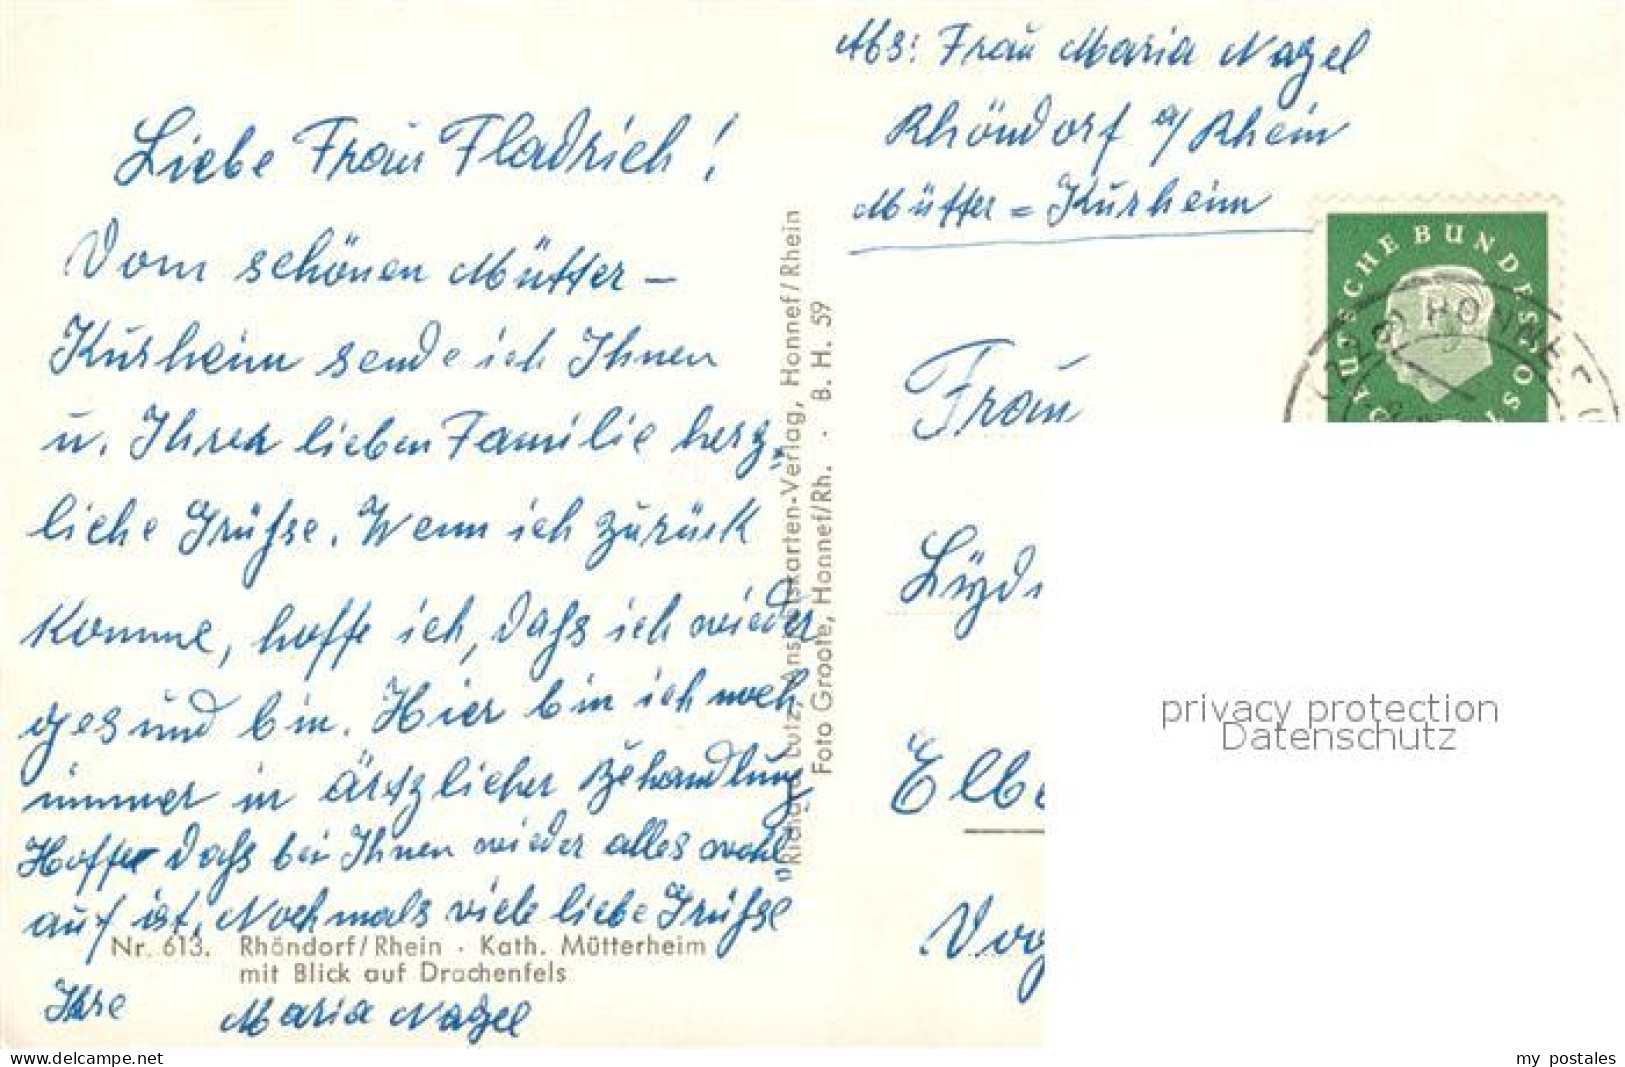 Abs: Frau Maria Nagel
Rhöndorf a/Rhein
Mütter=Kurheim
Liebe Frau Fladrich!
Vom schönen Mütter-
Kurheim sende ich Ihnen
u. Ihrer lieben Familie herz-
liche Grüße. Wenn ich zurück
komme, hoffe ich, daß ich wieder
gesund bin. Hier bin ich noch
immer in ärtzlicher Behandlung
Hoffe daß bei Ihnen wieder alles wohl
auf ist. Nochmals viele liebe Grüße
Ihre Maria Nagel
Nr. 613. Rhöndorf/Rhein · Kath. Mütterheim
mit Blick auf Drachenfels
Lutz, Ansichtskarten-Verlag, Honnef/Rhein
Foto Groote, Honnef/Rh. · B. H. 59
DEUTSCHE BUNDESPOST
HONNEF
Frau
privacy protection
Datenschutz
www.delcampe.net
my postales